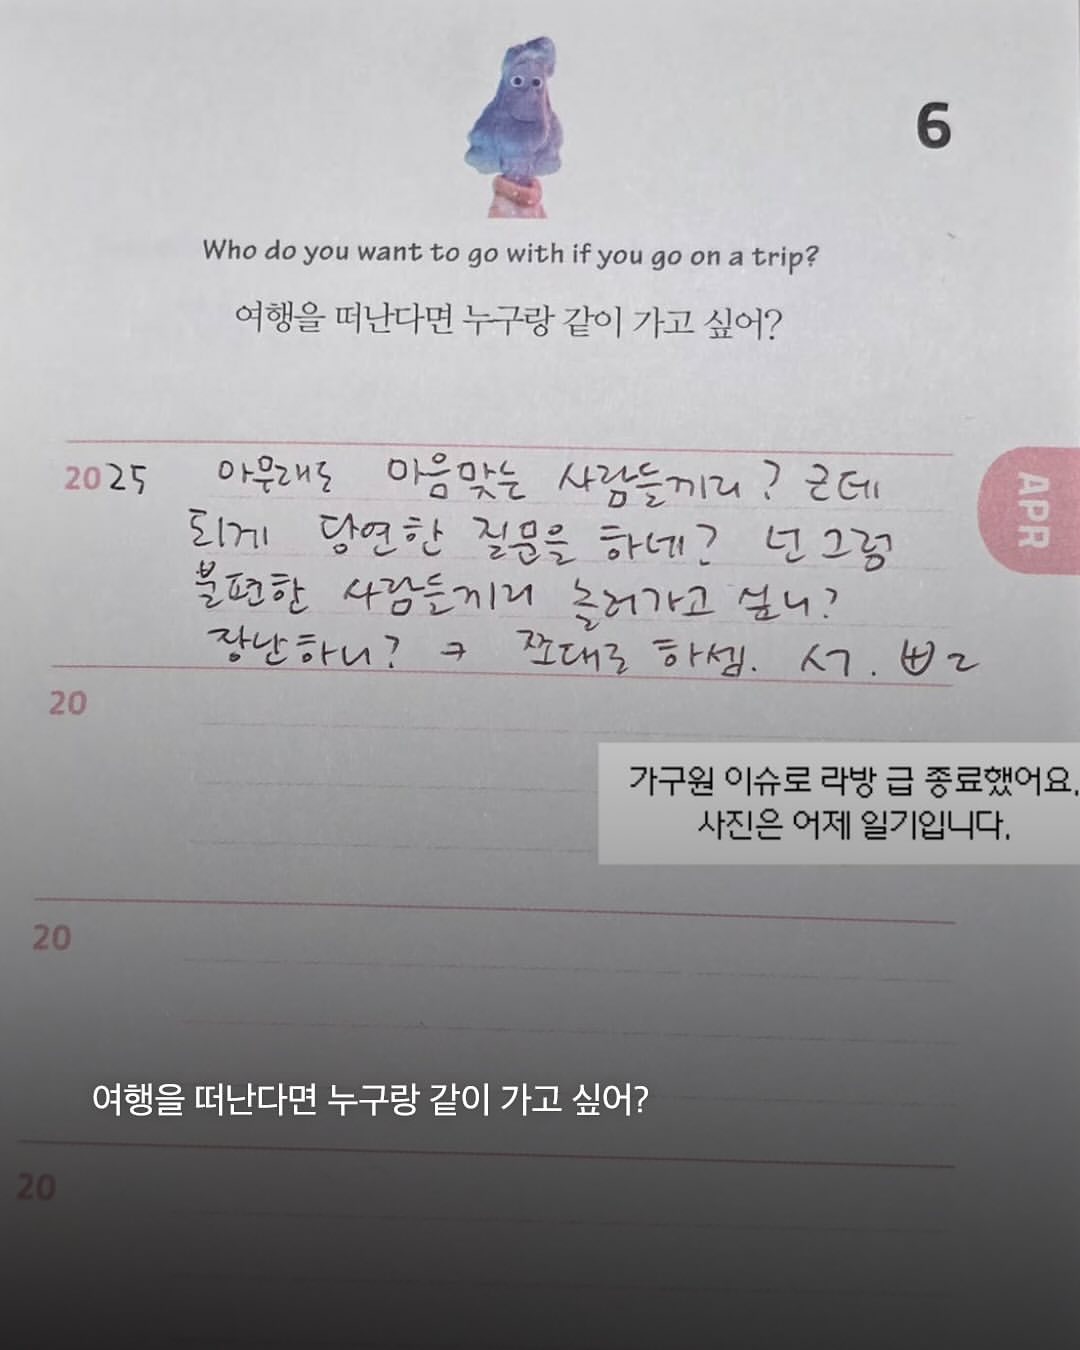 6
Who do you want to go with if you go on a trip?
여행을 떠난다면 누구랑 같이 가고 싶어?
APR
2025 아무래도 마음맞는 사람들끼리? 근데
되게 당연한 질문을 하네? 넌 그럼
불편한 사람들끼리 놀러가고 싶니?
장난하니? ㅋ 쪼대로 하셈.
20
가구원 이슈로 라방 급 종료했어요.
사진은 어제 일기입니다.
20
여행을 떠난다면 누구랑 같이 가고 싶어?
20